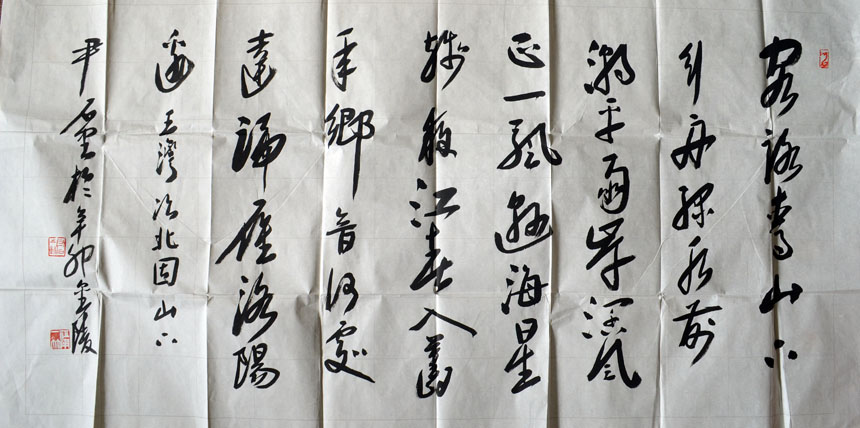 客路青山下
行舟綠水前
潮平兩岸濶風
正一颿懸海日生
殘夜江春入舊
年鄉書何處
達歸雁洛陽
邊 王灣次北固山下
尹 於辛卯金陵